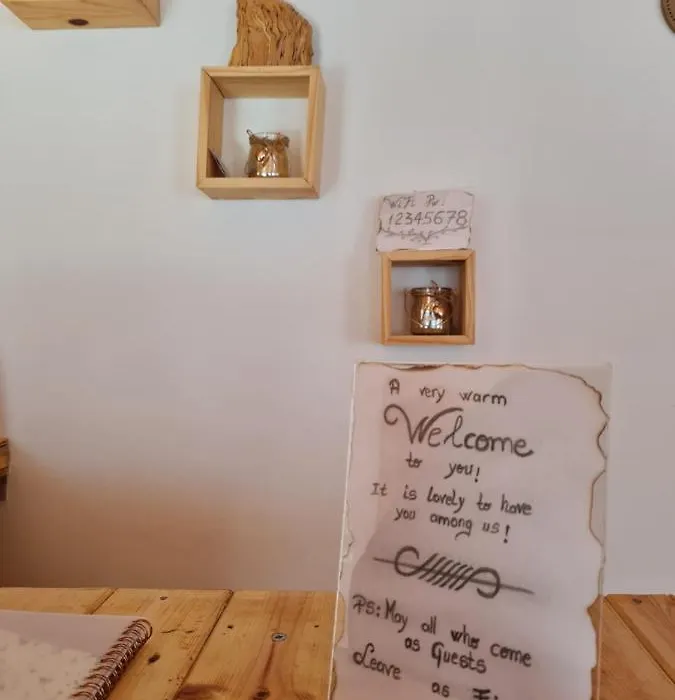 WiFi Pw:
12345678
A very warm
Welcome
to you!
It is lovely to have
you among us!
PS: May all who come
as Guests
Leave as